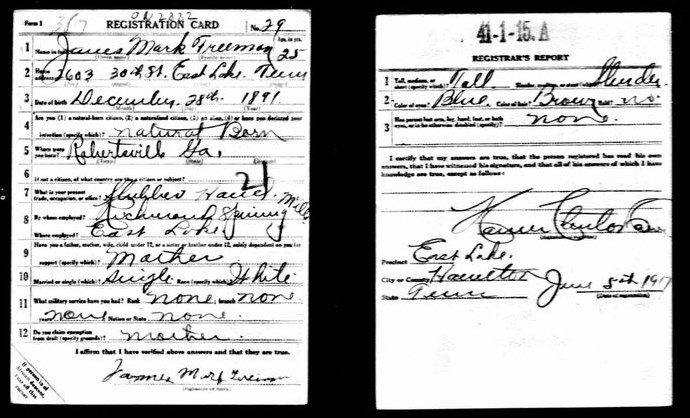 Form 1
REGISTRATION CARD
No. 29
1 Name in full James Mark Freeman
Age, in yrs. 25
2 Home address 2603 30th St. East Lake Tenn
3 Date of birth December 28th 1891
(Month) (Day) (Year)
4 Are you (1) a natural-born citizen, (2) a naturalized citizen, (3) an alien, (4) or have you declared your
intention (specify which)? Natural Born
5 Where were you born? Robertsville Ga.
6 If not a citizen, of what country are you a citizen or subject?
21
7 What is your present trade, occupation, or office? Hand
8 By whom employed? Richmond Spinning Mills
Where employed? East Lake
9 Have you a father, mother, wife, child under 12, or a sister or brother under 12, solely dependent on you for
support (specify which)? Mother
10 Married or single (which)? Single Race (specify which)? White
11 What military service have you had? Rank none; branch none
years none Nation or State none
12 Do you claim exemption from draft (specify grounds)? mother
I affirm that I have verified above answers and that they are true.
James Mark Freeman
41-1-15. A
REGISTRAR'S REPORT
1 Tall, medium, or short (specify which)? Tall Slender, medium, or stout (which)? Slender
2 Color of eyes? Blue Color of hair? Brown Bald? no
3 Has person lost arm, leg, hand, foot, or both
eyes, or is he otherwise disabled (specify)? none
I certify that my answers are true, that the person registered has read his own
answers, that I have witnessed his signature, and that all of his answers of which I have
knowledge are true, except as follows:
Precinct East Lake.
City or County Hamilton
State Tenn
June 5th 1917
(Date of registration)